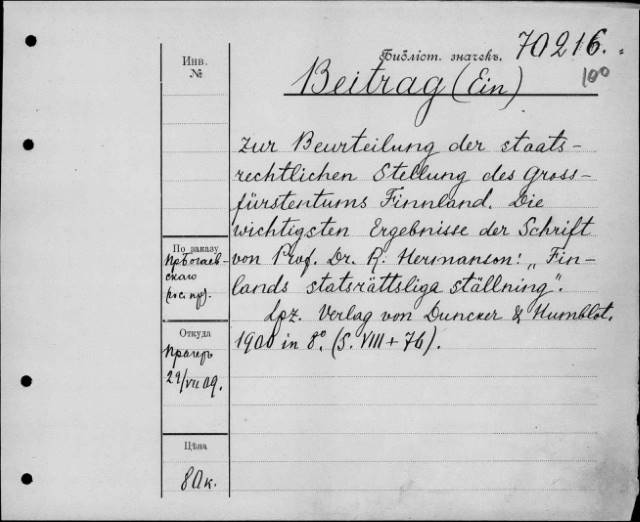 Инв.
№
Библіот. значекъ. 70216.
100
Beitrag (Ein)
zur Beurteilung der staats-
rechtlichen Stellung des Gross-
fürstentums Finnland. Die
wichtigsten Ergebnisse der Schrift
von Prof. Dr. R. Hermanson: „Fin-
lands statsrättsliga ställning".
Lpz. Verlag von Duncker & Humblot.
1900 in 8º. (S. VIII + 76).
По заказу
(гос. пр).
Откуда
Прагеръ
29/VII 09.
Цѣна
80 к.